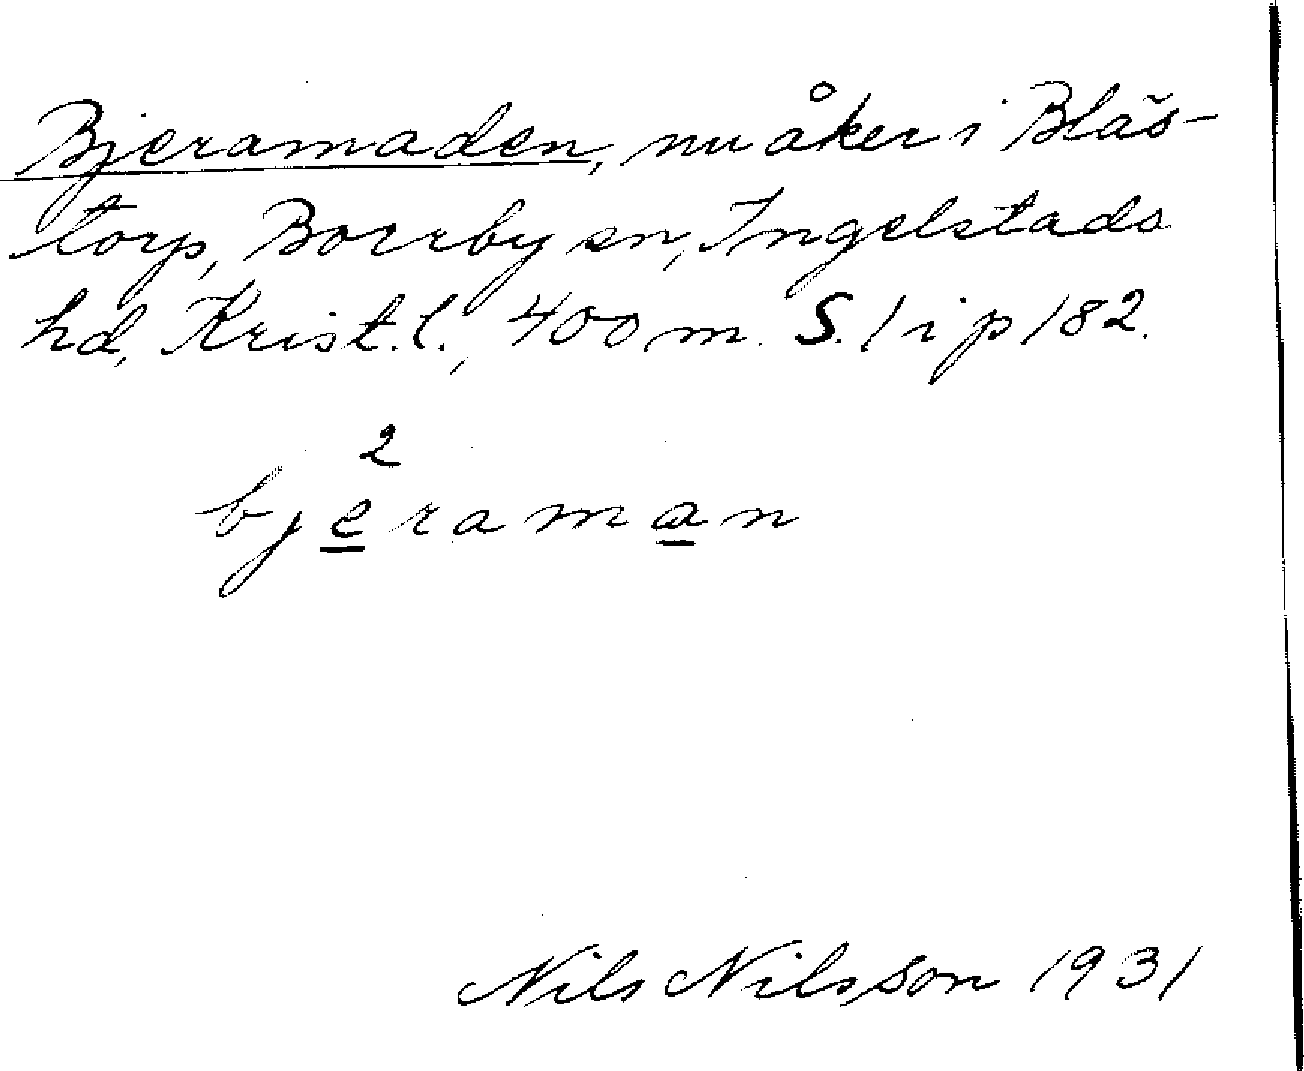 Bjeramaden, nu åker i Blås-
torp, Borrby sn, Ingelstads
hd, Krist. l., 400 m. S. 1 i p 182.
2
bjeraman
Nils Nilsson 1931